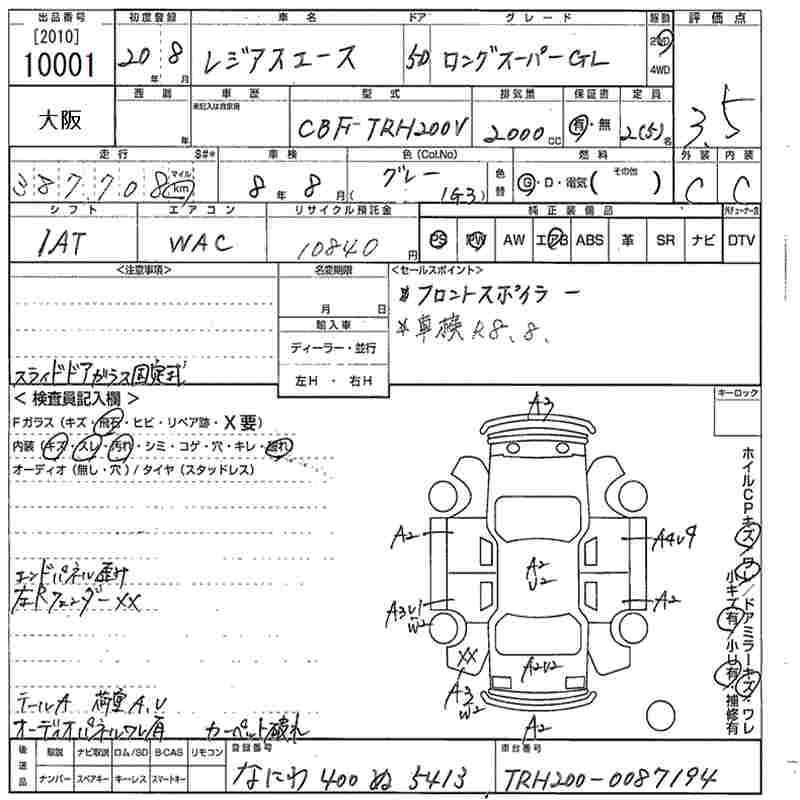 出品番号 初度登録 車名 ドア グレード 駆動 評価点
[2010] 10001 20年 8月 レジアスエース 5D ロングスーパーGL 2WD 4WD 3.5
大阪 西暦 年 車歴 未記入は自家用 型式 CBF-TRH200V 排気量 2000cc 保証書 有・無 定員 2(5)名
走行 387,708 マイル km S#* 車検 8年 8月 色(Col.No) グレー (1G3) 色替 燃料 G・D・電気( その他 ) 外装 C 内装 C
シフト 1AT エアコン WAC リサイクル預託金 10840円 純正装備品 PS PW AW エアB ABS 革 SR ナビ DTV
<注意事項> 名変期限 月 日 <セールスポイント>
*フロントスポイラー
輸入車 *車検R8.8.
ディーラー・並行
スライドドアガラス固定式 左H・右H
<検査員記入欄> キーロック
Fガラス(キズ・飛石・ヒビ・リペア跡・X要)
内装(キズ・スレ・汚れ・シミ・コゲ・穴・キレ・破れ)
オーディオ(無し・穴)/タイヤ(スタッドレス)
A3
A2 A4U9
A2
U2
A3U1
W2 A2
XX A2U2
A3
W2 A2
エンドパネル歪み
左RフェンダーXX
テールA 荷室A,U
オーディオパネルワレ有 カーペット破れ
ホイルCPキズ/ワレ/ドアミラーキズ・ワレ
小キズ有/小U有・補修有
後送品 取説 ナビ取説 ロム/SD B-CAS リモコン 登録番号 車台番号
ナンバー スペアキー キーレス スマートキー なにわ 400 ぬ 5413 TRH200-0087194